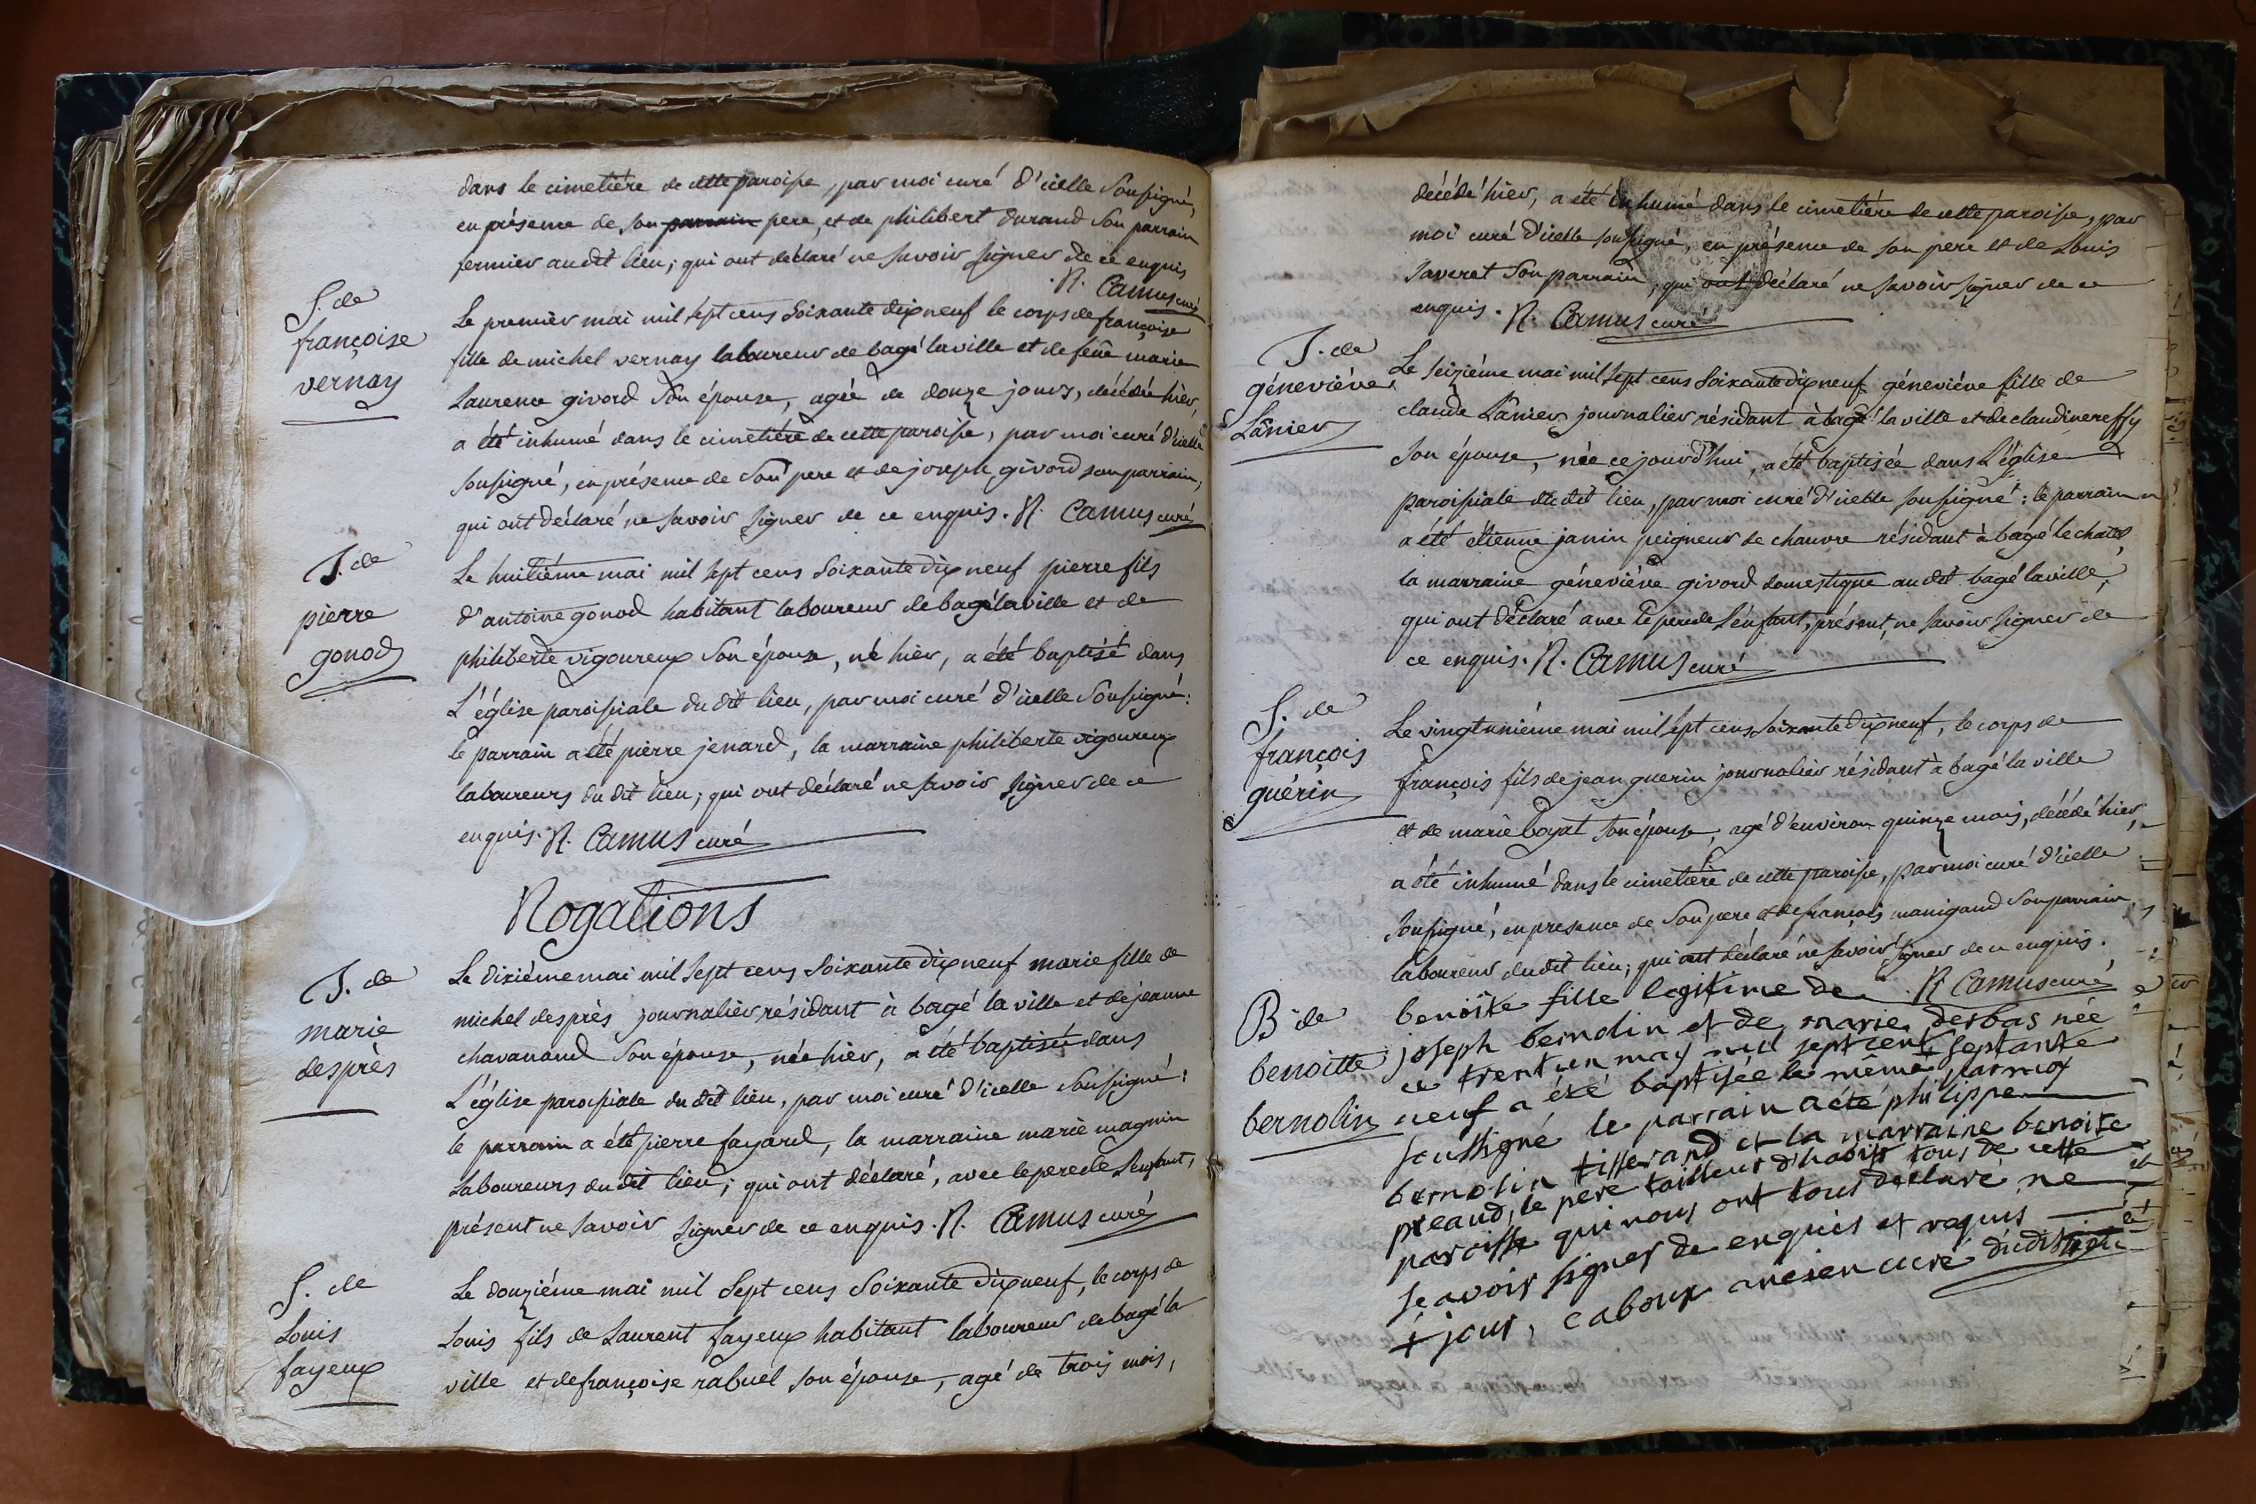 dans le cimetière de cette paroisse, par moi curé d'icelle soussigné,
en présence de son parrain pere, et de philibert durand son parrain
fermier au dit lieu; qui ont déclaré ne savoir signer de ce enquis
R. Camus curé
S. de
françoise
vernay
Le premier mai mil sept cens soixante dix neuf le corps de françoise
fille de michel vernay laboureur de bagé la ville et de feüe marie
Laurence givord son épouse, agée de douze jours, décédée hier,
a été inhumé dans le cimetière de cette paroisse, par moi curé d'icelle
soussigné, en présence de son pere et de joseph givord son parrain,
qui ont déclaré ne savoir signer de ce enquis. R. Camus curé
J. de
pierre
gonod
Le huitiéme mai mil sept cens soixante dix neuf pierre fils
d'antoine gonod habitant laboureur de bagé la ville et de
philiberte vigoureux son épouse, né hier, a été baptisé dans
L'église paroissiale du dit lieu, par moi curé d'icelle soussigné:
le parrain a été pierre jenard, la marraine philiberte vigoureux
laboureurs du dit lieu; qui ont déclaré ne savoir signer de ce
enquis. R. Camus curé
Rogations
J. de
marie
desprès
Le dixiéme mai mil sept cens soixante dix neuf marie fille de
michel desprès journalier résidant à bagé la ville et de jeanne
chavanand son épouse, née hier, a été baptisée dans
L'église paroissiale du dit lieu, par moi curé d'icelle soussigné:
le parrain a été pierre fayard, la marraine marie magnin
laboureurs du dit lieu; qui ont déclaré, avec le pere de l'enfant,
présent ne savoir signer de ce enquis. R. Camus curé
S. de
Louis
fayeux
Le douziéme mai mil sept cens soixante dix neuf, le corps de
Louis fils de Laurent fayeux habitant laboureur de bagé la
ville et de françoise rabuel son épouse, agé de trois mois,
décédé hier, a été inhumé dans le cimetière de cette paroisse, par
moi curé d'icelle soussigné, en présence de son pere et de Louis
son parrain, qui ont déclaré ne savoir signer de ce
enquis. R. Camus curé
J. de
géneviéve
Lânier
Le seiziéme mai mil sept cens soixante dix neuf géneviéve fille de
claude Lânier journalier résidant à bagé la ville et de claudine reffy
son épouse, née ce jourd'hui, a été baptisée dans L'église
paroissiale du dit lieu, par moi curé d'icelle soussigné: le parrain
a été étienne janin peigneur de chanvre résidant à bagé le chatel,
la marraine géneviéve givord domestique au dit bagé la ville,
qui ont déclaré avec le pere de l'enfant, présent, ne savoir signer de
ce enquis. R. Camus curé
S. de
françois
guérin
Le vingtuniéme mai mil sept cens soixante dix neuf, le corps de
françois fils de jean guerin journalier résidant à bagé la ville
et de marie boyat son épouse, agé d'environ quinze mois, décédé hier,
a été inhumé dans le cimetière de cette paroisse, par moi curé d'icelle
soussigné, en presence de son pere et de françois manigand son parrain
laboureur du dit lieu; qui ont déclaré ne savoir signer de ce enquis.
R Camus curé
B de
benoitte
bernolin
benoite fille legitime de
joseph bernolin et de marie desbas née
ce trent un may mil sept cent septante
neuf a été baptisée le même + par moy
soussigné le parrain a été philippe
bernolin tisserand et la marraine benoite
preaud, le pere tailleur d'habits tous de cette
paroisse qui nous ont tous declaré ne
scavoir signer de enquis et requis
+ jour, caboux ancien curé du dit